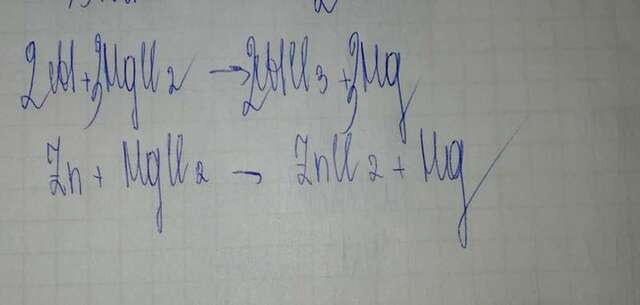 2Al + 3MgCl2 → 2AlCl3 + 3Mg
Zn + MgCl2 → ZnCl2 + Mg